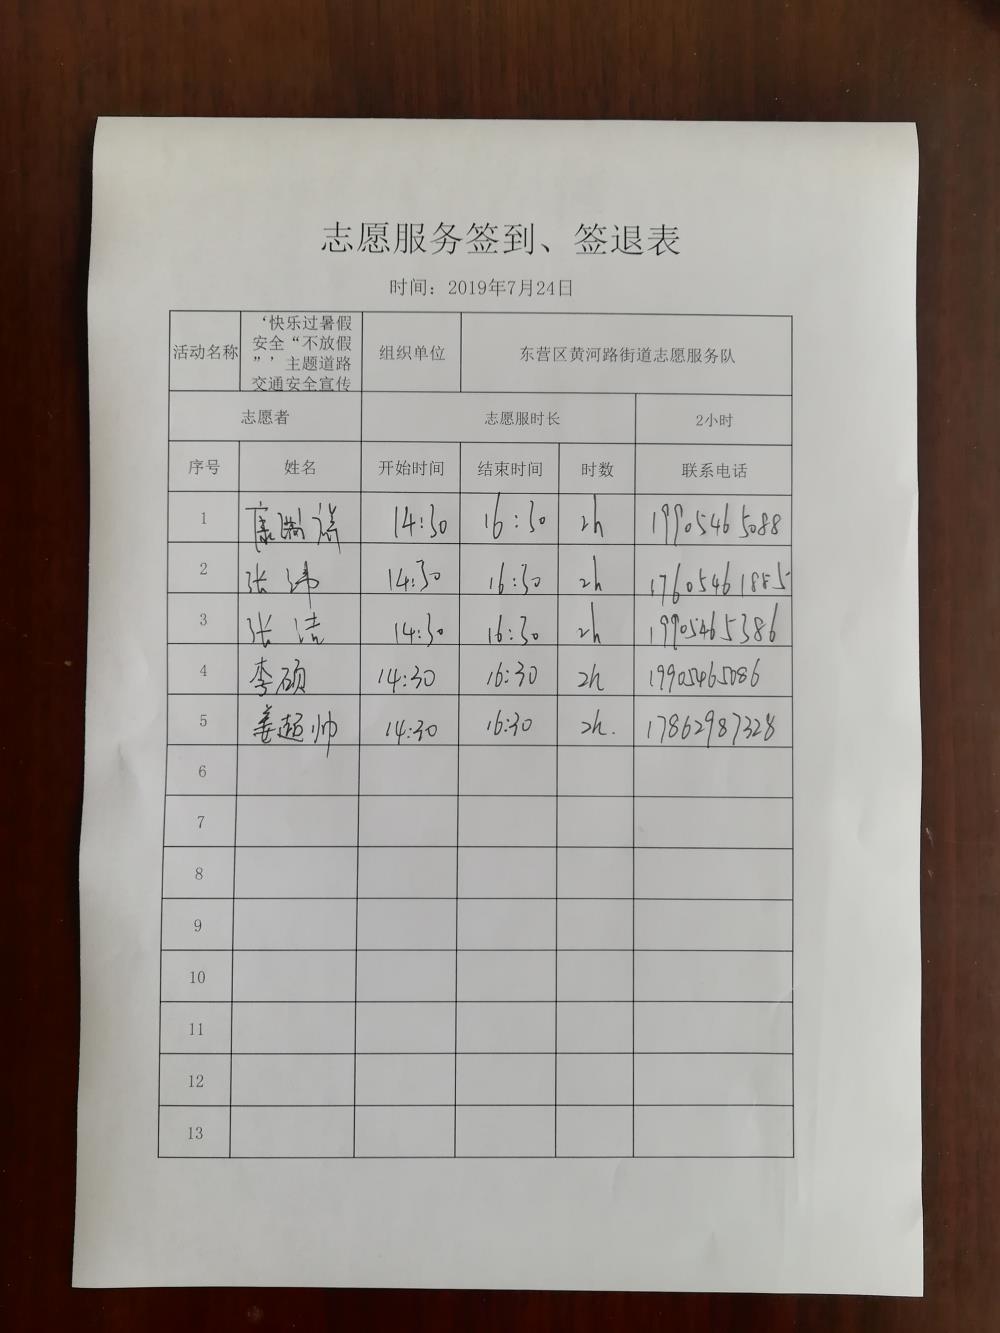 志愿服务签到、签退表
时间：2019年7月24日
活动名称 ‘快乐过暑假安全“不放假”’主题道路交通安全宣传 组织单位 东营区黄河路街道志愿服务队
志愿者 志愿服时长 2小时
序号 姓名 开始时间 结束时间 时数 联系电话
1 康 14:30 16:30 2h 19905465088
2 张 14:30 16:30 2h 17605461885
3 张洁 14:30 16:30 2h 19905465386
4 李硕 14:30 16:30 2h 19905465086
5 姜超帅 14:30 16:30 2h. 17862987328
6
7
8
9
10
11
12
13